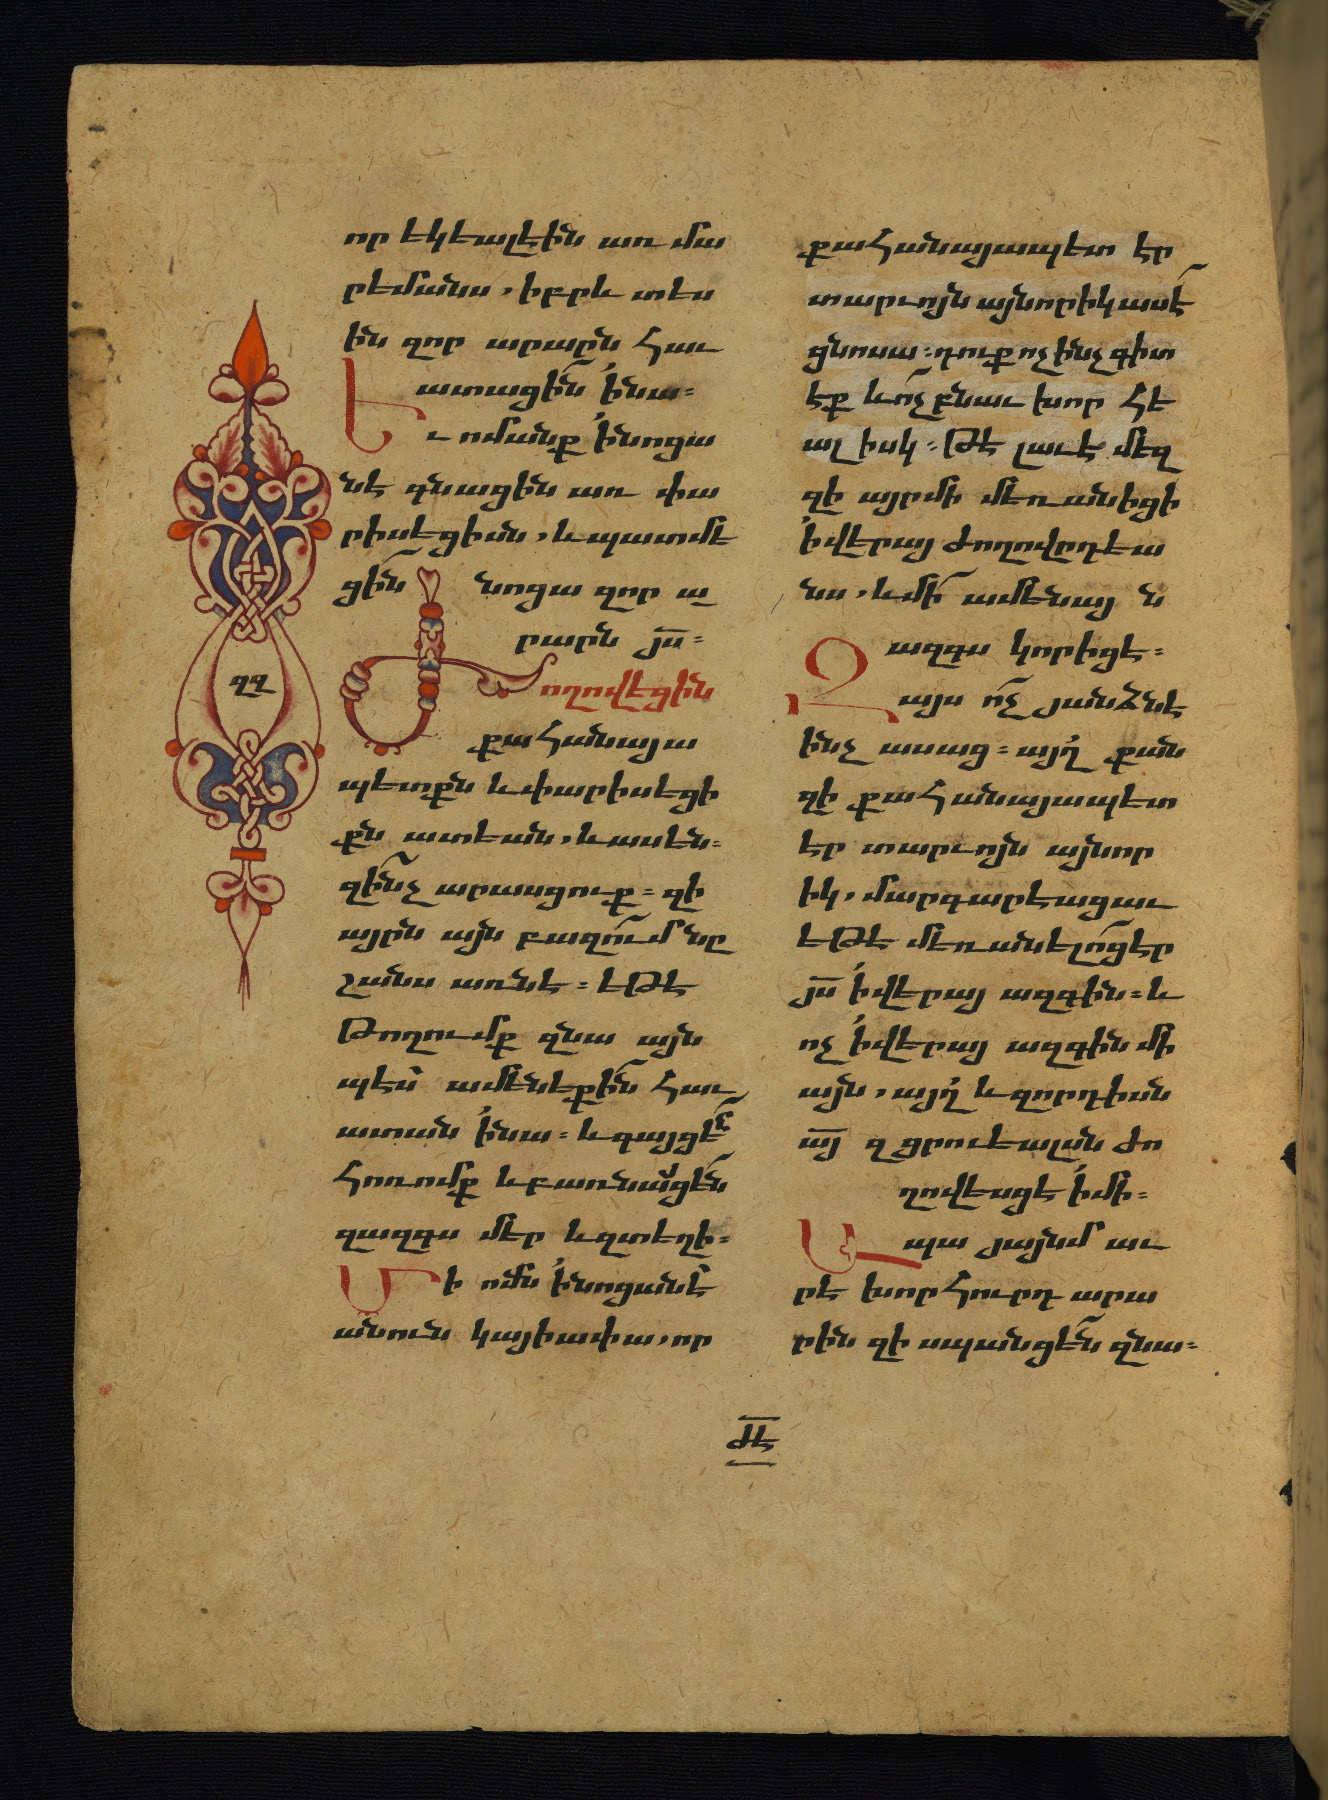 որ եկեալ էին առ մա
րեմանս, իբրև տես
ին զոր արարն հաւ
ատացին ՛ի նա։
Եւ ոմանք ՛ի նոցա
նէ գնացին առ փա
րիսեցիսն, և պատմե
ցին նոցա զոր ա
րարն յս։
Ժողովեցին
քահանայա
պետքն և փարիսեցի
քն ատեան, և ասեն։
զինչ արասցուք։ զի
այրն այն բազում նը
շանս առնե։ եթե
թողումք զնա այն
պէս ամենեքին հաւ
ատան ՛ի նա։ և գայցեն
հռոմք և բառնայցեն
զազգս մեր և զտեղի։
Մի ոմն ՛ի նոցանէ
անուն կայիափա, որ
քահանայապետ էր
տարւոյն այնորիկ ասէ
ցնոսա։ դուք ոչ ինչ գիտ
էք և ոչ բնաւ խոր հե
ալ իսկ։ թե լաւ է մեզ
զի այր մի մեռանիցի
՛ի վերայ ժողովրդեա
նս, և մի ամենայ ն
ազգս կորիցե։
Զայս ոչ յանձնե
ինչ ասաց։ այղ քան
զի քահանայապետ
էր տարւոյն այնոր
իկ, մարգարեացաւ
եթե մեռանելոց էր
յս ՛ի վերայ ազգին։ և
ոչ ՛ի վերայ ազգին մի
այն, այղ և զորդիսն
այ զ ցրուեալսն ժո
ղովեսցե ՛ի մի։
Ապա յայնմ աւ
րե խորհուրդ արա
րին զի սպանցեն զնա։
ղզ
ժէ